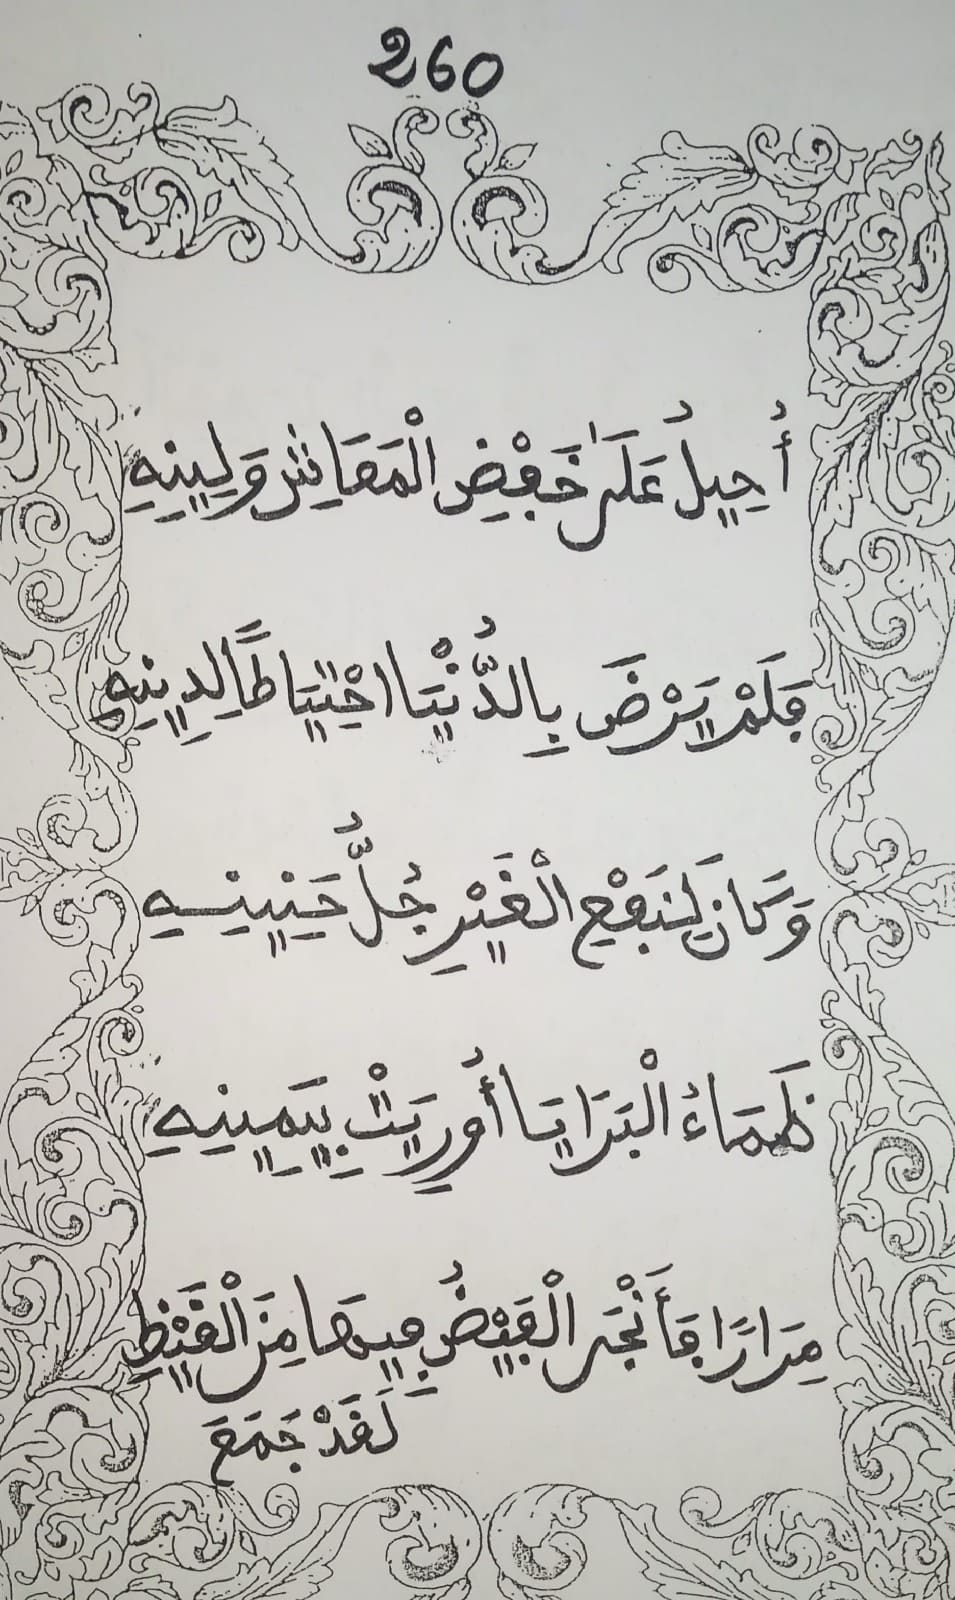 260
أُحِيلُ عَلَىٰ خَفْضِ الْمَعَايِشِ وَلِينِهِ
فَلَمْ يَرْضَ بِالدُّنْيَا احْتِيَاطًا لِدِينِهِ
وَكَانَ لِنَفْعِ الْغَيْرِ جُلُّ حَنِينِهِ
ظِمَاءُ الْبَرَايَا أُورِيَتْ بِيَمِينِهِ
مِرَارًا فَأَنْجَى الْفَيْضُ فِيهَا مِنَ الْقَيْظِ
لَقَدْ جَمَعَ